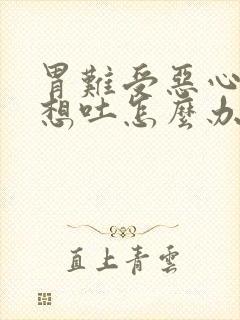 胃難受惡心
想吐怎麼办
直上青雲